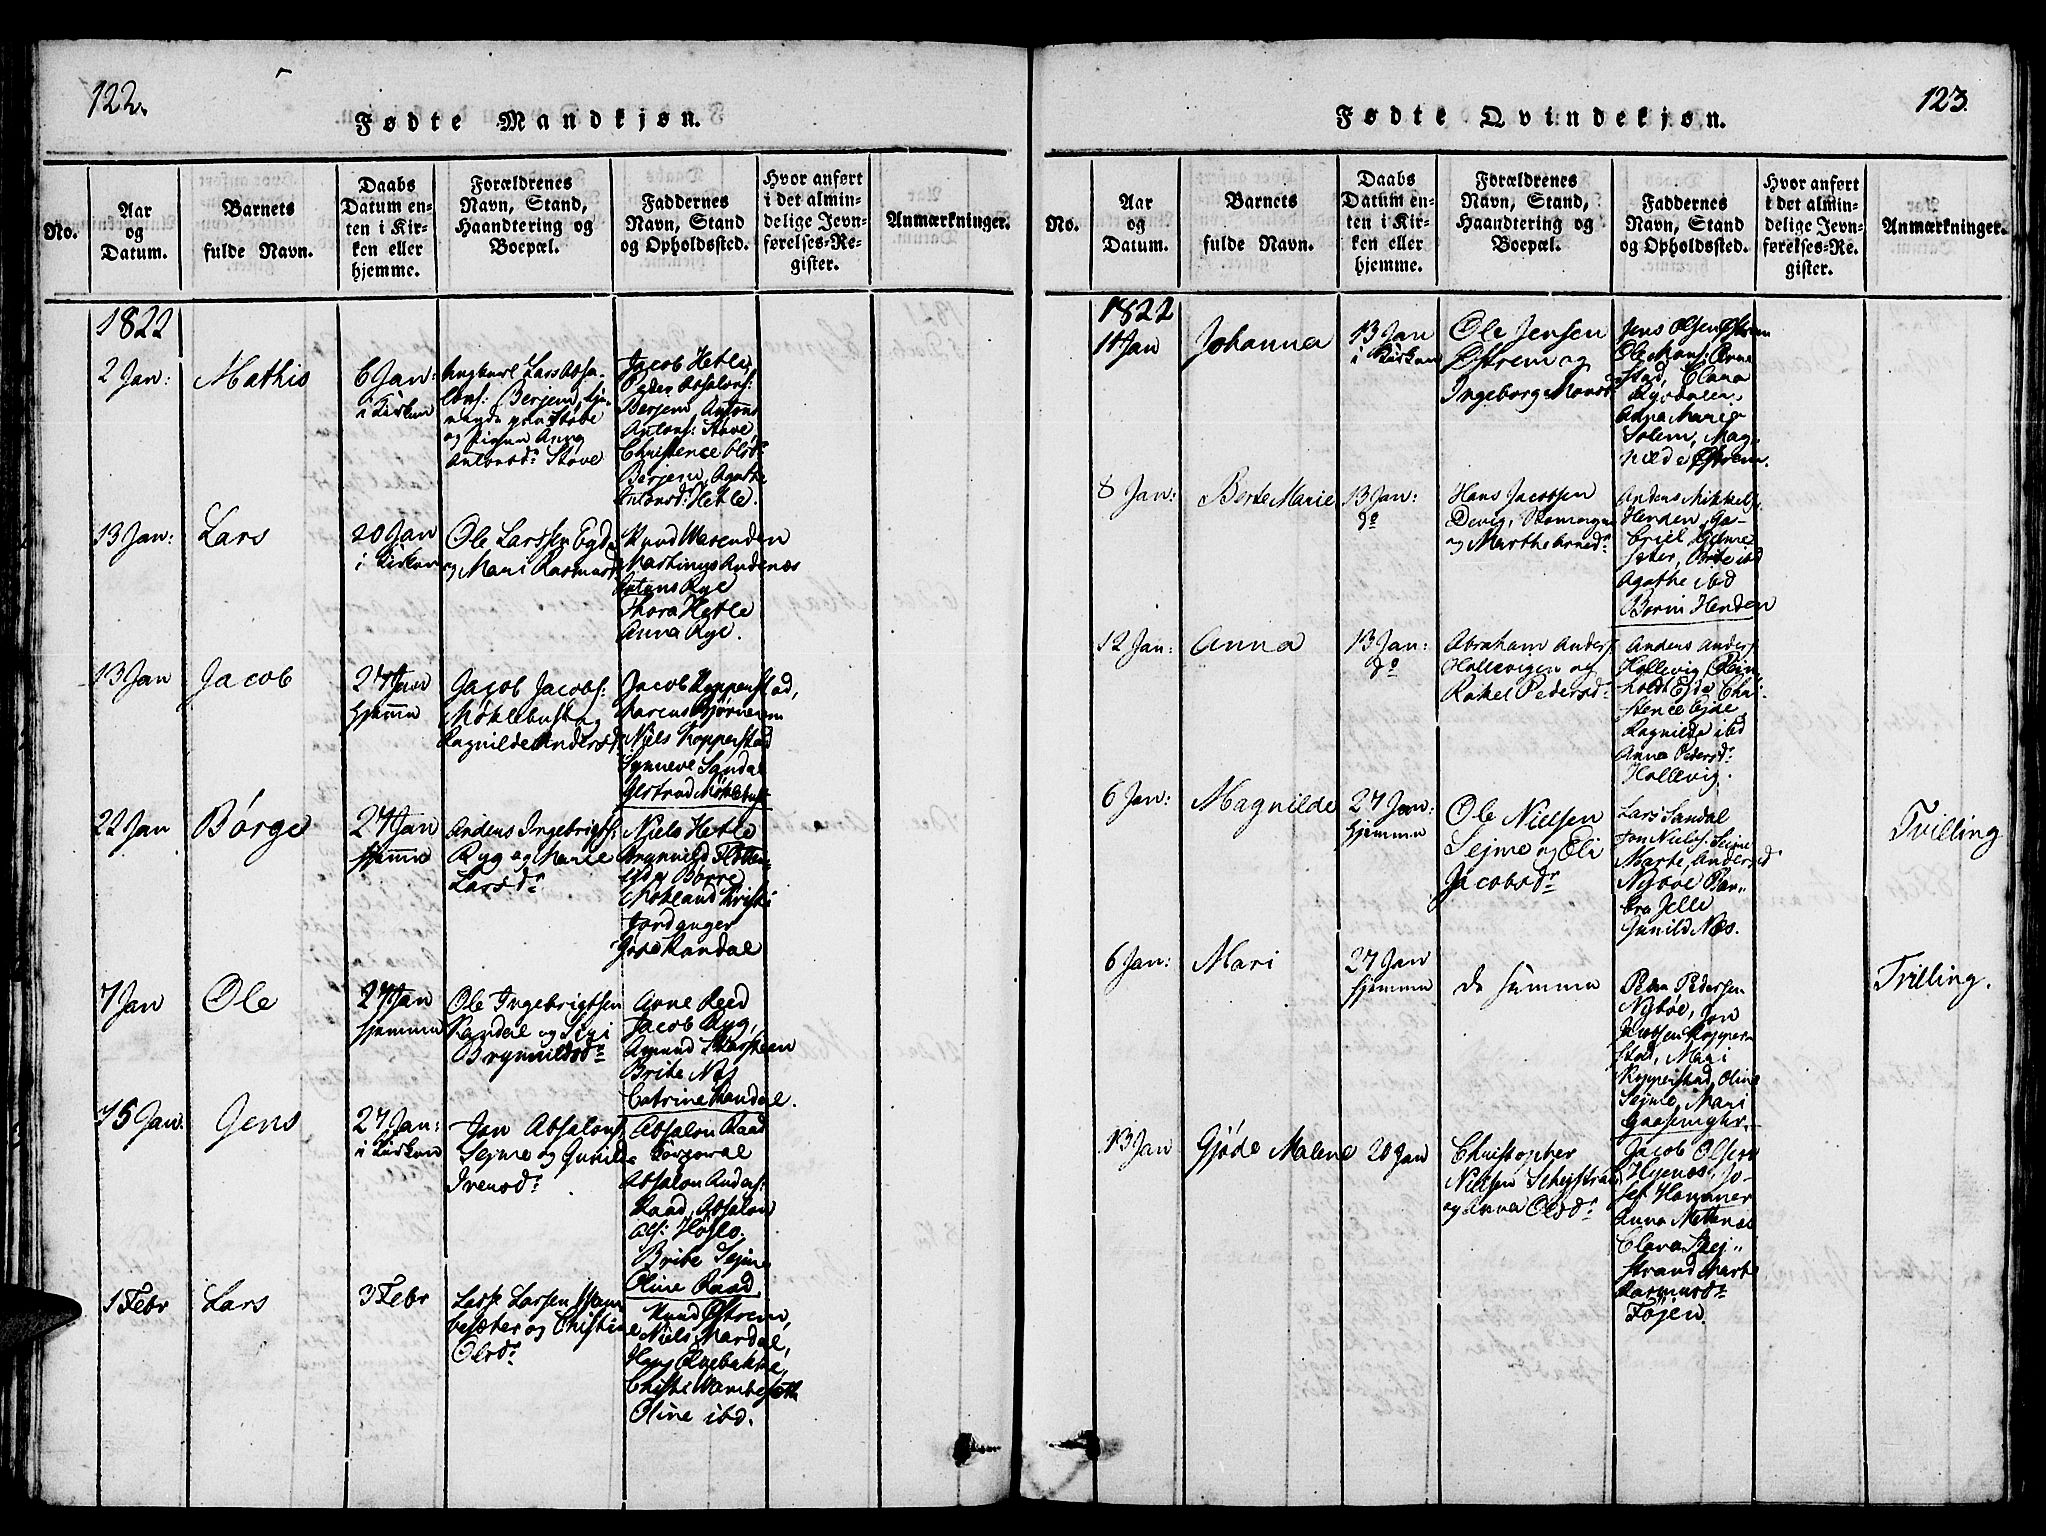 122.
Fødte Mandkjøn.
No.
Aar
og
Datum.
Barnets
fulde Navn.
Daabs
Datum en-
ten i Kir-
ken eller
hjemme.
Forældrenes
Navn, Stand,
Haandtering og
Boepæl.
Faddernes
Navn, Stand
og Opholdssted.
Hvor anført
i det almin-
delige Jevn-
førelses-Re-
gister.
Anmærkninger.
1822
2 Jan:
Mathis
6 Jan:
i Kirken
Ungkarl Lars Absa-
lons: Berjem,
og Pigen Anna
Antonsdr Stave
Jacob Hetle,
Peder Absalons:
Berjem, Antons
Antons: Stave
Christence
Berjem, Agathe
Antonsdr Hetle.
13 Jan:
Lars
20 Jan
i Kirken
Ole Larssen Eyde
og Mari Rasmusd
Knud Warenden
Martinus Andenæs
Antons Rye
Thora Hetle
Anna Rye.
13 Jan
Jacob
27 Jan
hjemme
Jacob Jacobs:
Møklebust og
Ragnilde Andersd
Jacob Kopperstad,
Marcus Bjørnereim
Niels Kopperstad
Synneve Sandal
Gjertrud Møklebust
22 Jan
Børge
27 Jan
hjemme
Anders Ingebrigts:
Ryg og Marie
Larsdr
Niels Hetle
Brynnild Flotten-
Eyde Børre
Mokland Kristi
Jordanger
Gjøe Randal
7 Jan
Ole
27 Jan
hjemme
Ole Ingebrigtsen
Randal og Siri
Brynnildsdr
Arne Reed
Jacob Ryg,
Amund Skarsteen
Brite Nes
Catrine Randal.
15 Jan:
Jens
27 Jan:
i Kirken
Jan Absalons:
Sejme og Gunilde
Iversdr
Absalon Raad
Korporal
Absalon Anders:
Raad, Absalon
Ols: Høflo.
Brite Sejme
Oline Raad
1 Febr
Lars
3 Febr
Lars Larsen Wam-
besæter og Christine
Olsdr
Knud Østrem,
Niels Mardal,
Hans Elvebakke
Christi Wambesæth
Oline ibd.
123.
Fødte Qvindekjøn.
No.
Aar
og
Datum.
Barnets
fulde Navn.
Daabs
Datum en-
ten i Kir-
ken eller
hjemme.
Forældrenes
Navn, Stand,
Haandtering og
Boepæl.
Faddernes
Navn, Stand
og Opholdssted.
Hvor anført
i det almin-
delige Jevn-
førelses-Re-
gister.
Anmærkninger.
1822
11 Jan
Johanna
13 Jan
i Kirken
Ole Jensen
Østrem og
Ingeborg Monsd
Jens Olsen Østrem
Ole Mons: Arne
stad,
Rysdalen,
Anna Marie
Solem, Mag-
nilde Østrem.
8 Jan:
Berte Marie
13 Jan:
do
Hans Jacobsen
Devig,
og Marthe Arnedr
Anders Mikkels:
Henden, Ga-
briel Gilme
seter, Brite ibd
Agathe ibd
Borni Henden
12 Jan:
Anna
13 Jan:
do
Abraham Anders
Hollevigen og
Rakel Pedersdr
Anders Anders
Hollevig, Rein-
holdt Ejde Chri-
stence Ejde,
Ragnilde ibd
Anna Pedersdr
Hollevig.
6 Jan:
Magnilde
27 Jan:
hjemme
Ole Nielsen
Sejme og Eli
Jacobsdr
Lars Sandal
Jon Niels: Seime
Marte Andersd
Nybøe Bar-
bra Jelle
Gunild Næs.
Tvilling
6 Jan:
Mari
27 Jan
hjemme
de samme
Peder Pedersen
Nybøe, Jon
Jacobsen Kopper-
stad, Mari
Kopperstad, Oline
Sejme, Mari
Tvilling.
13 Jan
Gjøde Malene
20 Jan
Christopher
Nielsen Schejstrand
og Anna Olsdr
Jacob Olsen
Hyenæs, Jo-
sef Hammer
Anna Mettenæs
Clara Skej-
strand Marte
Rasmusdr
Føjen.